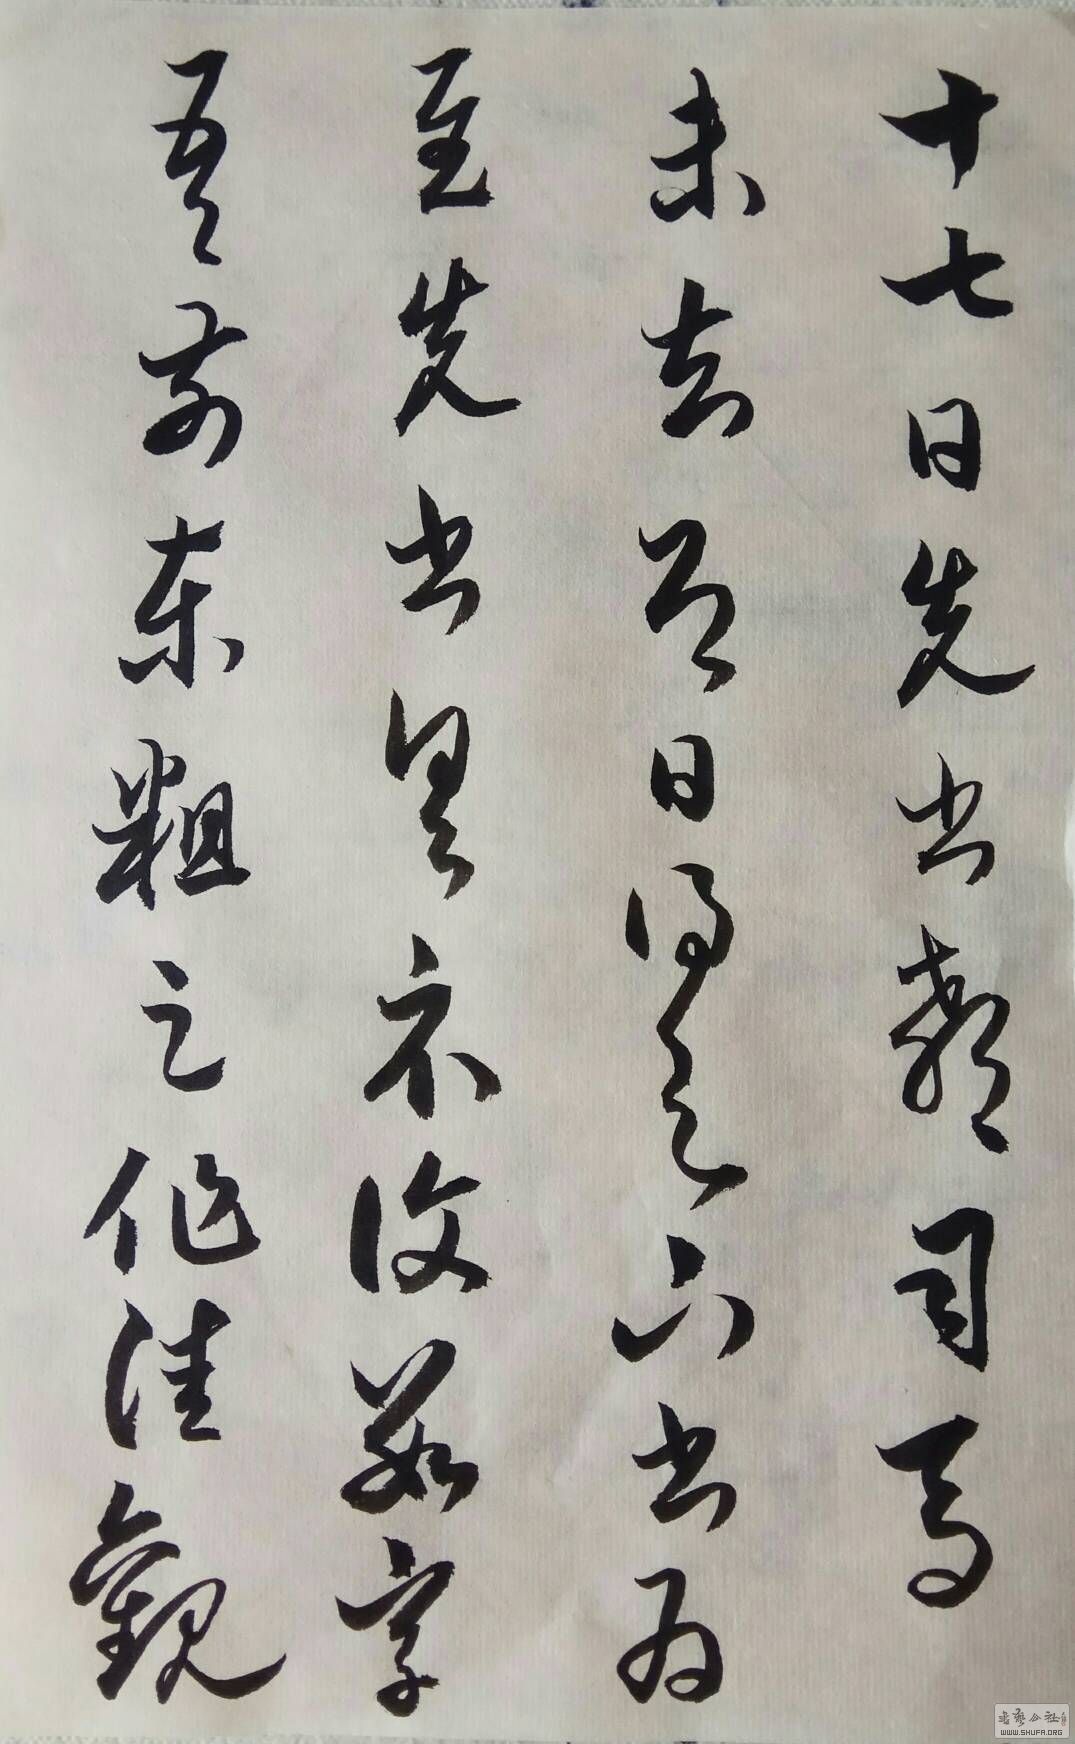 十七日先书郗司马
未去即日得足下书为
慰先书以具示复数字
吾前东粗足作佳觀
書藝公社
WWW.SHUFA.ORG